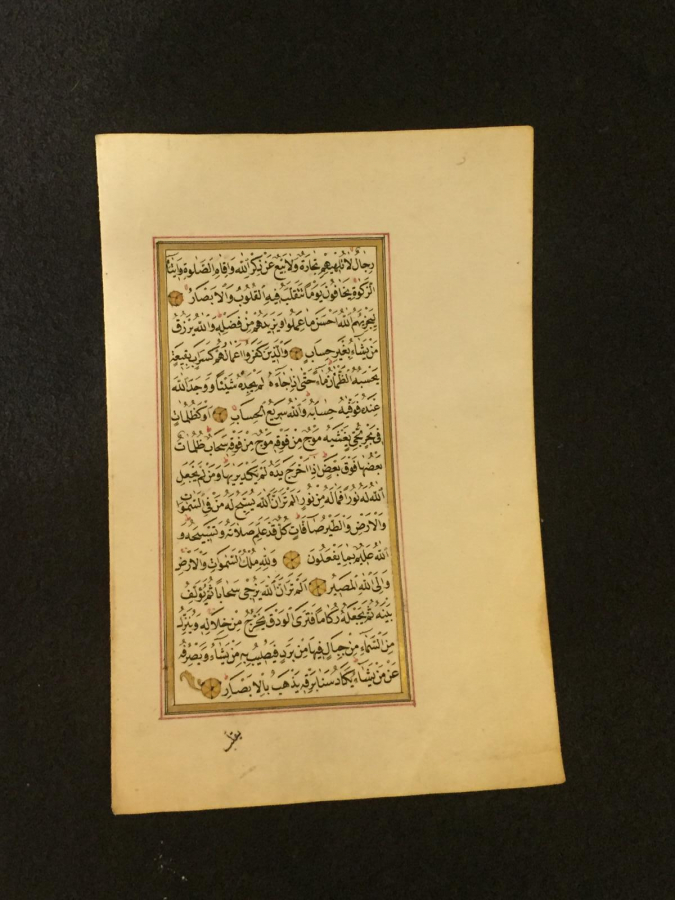 رِجَالٌ لَا تُلْهِيهِمْ تِجَارَةٌ وَلَا بَيْعٌ عَنْ ذِكْرِ اللّٰهِ وَاِقَامِ الصَّلٰوةِ وَاِيتَاءِ
الزَّكٰوةِ يَخَافُونَ يَوْمًا تَتَقَلَّبُ فِيهِ الْقُلُوبُ وَالْاَبْصَارُ
لِيَجْزِيَهُمُ اللّٰهُ اَحْسَنَ مَا عَمِلُوا وَيَزِيدَهُمْ مِنْ فَضْلِهِ وَاللّٰهُ يَرْزُقُ
مَنْ يَشَاءُ بِغَيْرِ حِسَابٍ وَالَّذِينَ كَفَرُوا اَعْمَالُهُمْ كَسَرَابٍ بِقِيعَةٍ
يَحْسَبُهُ الظَّمْاٰنُ مَاءً حَتّٰى اِذَا جَاءَهُ لَمْ يَجِدْهُ شَيْئًا وَوَجَدَ اللّٰهَ
عِنْدَهُ فَوَفّٰيهُ حِسَابَهُ وَاللّٰهُ سَرِيعُ الْحِسَابِ اَوْ كَظُلُمَاتٍ
فِي بَحْرٍ لُجِّيٍّ يَغْشٰيهُ مَوْجٌ مِنْ فَوْقِهِ مَوْجٌ مِنْ فَوْقِهِ سَحَابٌ ظُلُمَاتٌ
بَعْضُهَا فَوْقَ بَعْضٍ اِذَا اَخْرَجَ يَدَهُ لَمْ يَكَدْ يَرٰيهَا وَمَنْ لَمْ يَجْعَلِ
اللّٰهُ لَهُ نُورًا فَمَا لَهُ مِنْ نُورٍ اَلَمْ تَرَ اَنَّ اللّٰهَ يُسَبِّحُ لَهُ مَنْ فِي السَّمٰوَاتِ
وَالْاَرْضِ وَالطَّيْرُ صَافَّاتٍ كُلٌّ قَدْ عَلِمَ صَلَاتَهُ وَتَسْبِيحَهُ وَ
اللّٰهُ عَلِيمٌ بِمَا يَفْعَلُونَ وَلِلّٰهِ مُلْكُ السَّمٰوَاتِ وَالْاَرْضِ
وَاِلَى اللّٰهِ الْمَصِيرُ اَلَمْ تَرَ اَنَّ اللّٰهَ يُزْجِي سَحَابًا ثُمَّ يُؤَلِّفُ
بَيْنَهُ ثُمَّ يَجْعَلُهُ رُكَامًا فَتَرَى الْوَدْقَ يَخْرُجُ مِنْ خِلَالِهِ وَيُنَزِّلُ
مِنَ السَّمَاءِ مِنْ جِبَالٍ فِيهَا مِنْ بَرَدٍ فَيُصِيبُ بِهِ مَنْ يَشَاءُ وَيَصْرِفُهُ
عَنْ مَنْ يَشَاءُ يَكَادُ سَنَا بَرْقِهِ يَذْهَبُ بِالْاَبْصَارِ
يُقَلِّبُ